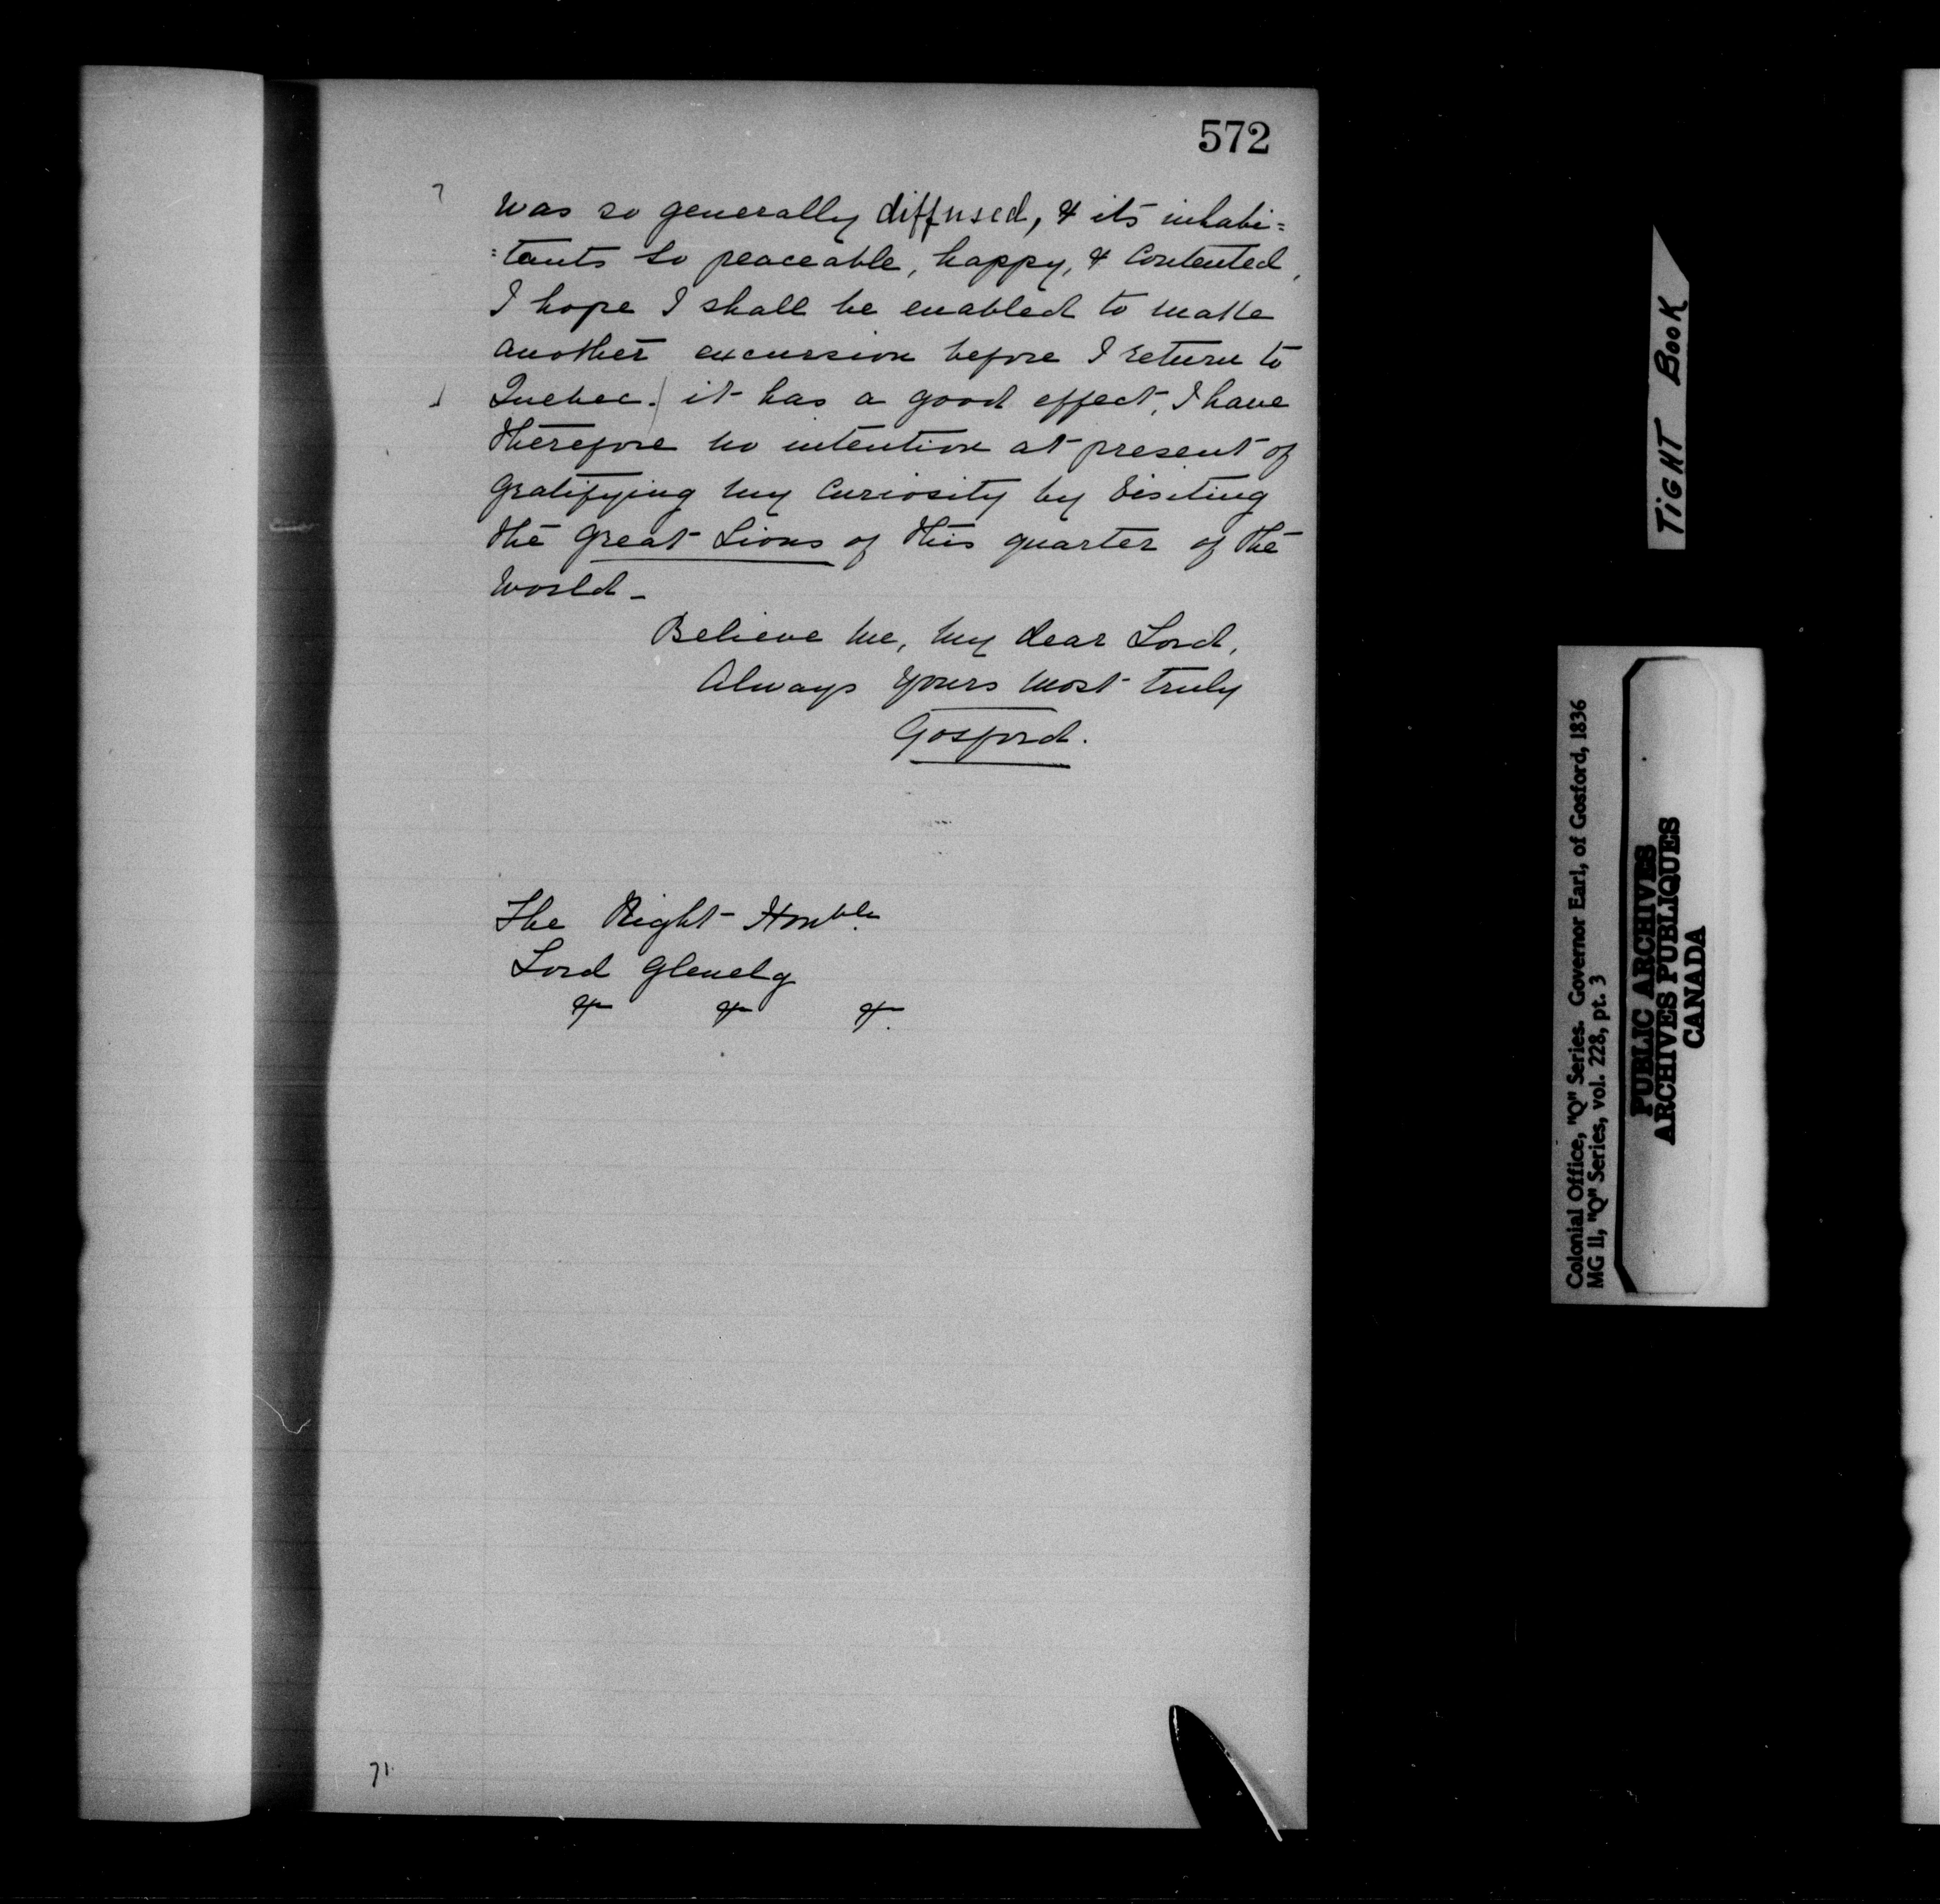 572
was so generally diffused, & its inhabi=
=tants so peaceable, happy, & contented,
I hope I shall be enabled to make
another excursion before I return to
Quebec. it has a good effect, I have
therefore no intention at present of
gratifying my curiosity by visiting
the great Lions of this quarter of the
World -
Believe me, my dear Lord,
Always yours most truly
Gosford.
The Right Honble.
Lord Glenelg
&c &c &c.
71
TIGHT BOOK
Colonial Office, "Q" Series. Governor Earl, of Gosford, 1836
MG 11, "Q" Series, vol. 228, pt. 3
PUBLIC ARCHIVES
ARCHIVES PUBLIQUES
CANADA